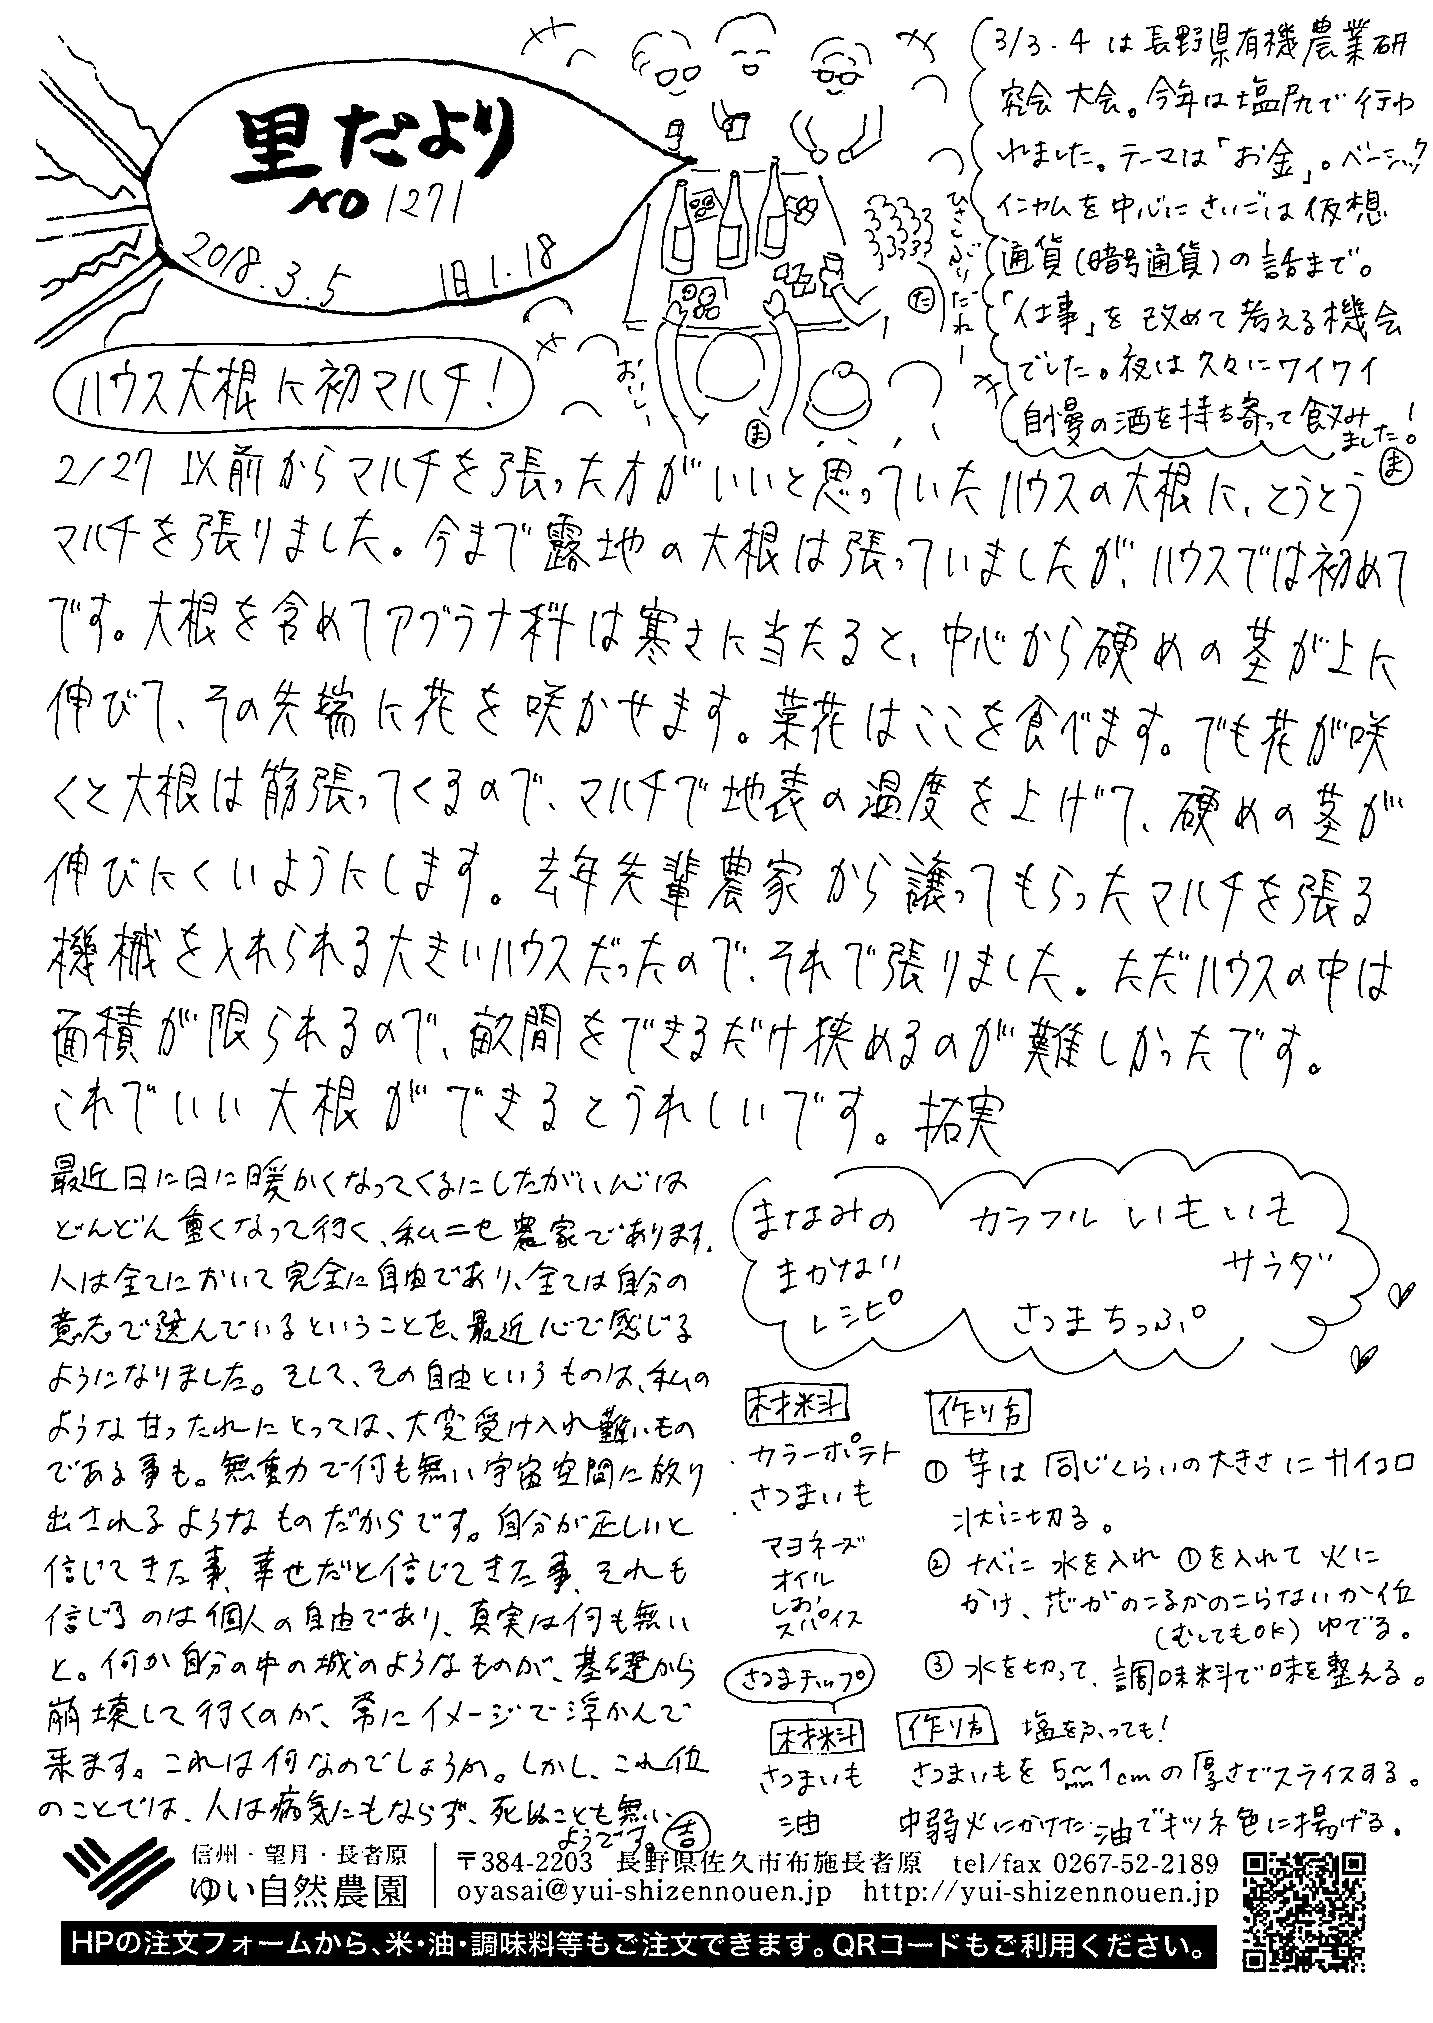 里だより
NO 1271
2018.3.5 旧1.18
3/3.4 は長野県有機農業研
究会 大会。今年は塩尻で行わ
れました。テーマは「お金」。ベーシック
インカムを中心にさいごは仮想
通貨(暗号通貨)の話まで。
「仕事」を改めて考える機会
でした。夜は久々にワイワイ
自慢の酒を持ち寄って飲み
ました！
ま
ひさぶりだねー
た
おいしい
ま
ハウス大根に初マルチ！
2/27 以前からマルチを張った方がいいと思っていたハウスの大根に、とうとう
マルチを張りました。今まで露地の大根は張っていましたが、ハウスでは初めて
です。大根を含めてアブラナ科は寒さに当たると、中心から硬めの茎が上に
伸びて、その先端に花を咲かせます。菜花はここを食べます。でも花が咲
くと大根は筋張ってくるので、マルチで地表の温度を上げて、硬めの茎が
伸びにくいようにします。去年先輩農家から譲ってもらったマルチを張る
機械を入れられる大きいハウスだったので、それで張りました。ただハウスの中は
面積が限られるので、畝間をできるだけ狭めるのが難しかったです。
これでいい大根ができるとうれしいです。拓実
最近日に日に暖かくなってくるにしたがい心は
どんどん重くなって行く、私ニセ農家であります。
人は全てにおいて完全に自由であり、全ては自分の
意志で選んでいるということを、最近心で感じる
ようになりました。そして、その自由というものは、私の
ような甘ったれにとっては、大変受け入れ難いもの
である事も。無重力で何も無い宇宙空間に放り
出されるようなものだからです。自分が正しいと
信じてきた事、幸せだと信じてきた事、それも
信じるのは個人の自由であり、真実は何も無い
と。何か自分の中の城のようなものが、基礎から
崩壊して行くのが、常にイメージで浮かんで
来ます。これは何なのでしょうか。しかし、これ位
のことでは、人は病気にもならず、死ぬことも無い
ようです。吉
まなみの
まかない
レシピ
カラフル いもいも
サラダ
さつまちっぷ
材料
・カラーポテト
・さつまいも
マヨネーズ
オイル
しお
スパイス
作り方
① 芋は同じくらいの大きさにサイコロ
状に切る。
② ナベに水を入れ①を入れて火に
かけ、芯がのこるかのこらないか位
(むしてもOK) ゆでる。
③ 水を切って、調味料で味を整える。
さつまチップ
材料
さつまいも
油
作り方 塩をふっても！
さつまいもを5mm〜1cmの厚さでスライスする。
中弱火にかけた油でキツネ色に揚げる。
信州・望月・長者原
ゆい自然農園
〒384-2203 長野県佐久市布施長者原 tel/fax 0267-52-2189
oyasai@yui-shizennouen.jp http://yui-shizennouen.jp
HPの注文フォームから、米・油・調味料等もご注文できます。QRコードもご利用ください。